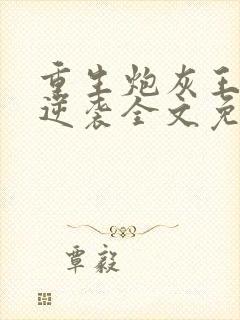 重生炮灰王
逆袭全文免
覃毅